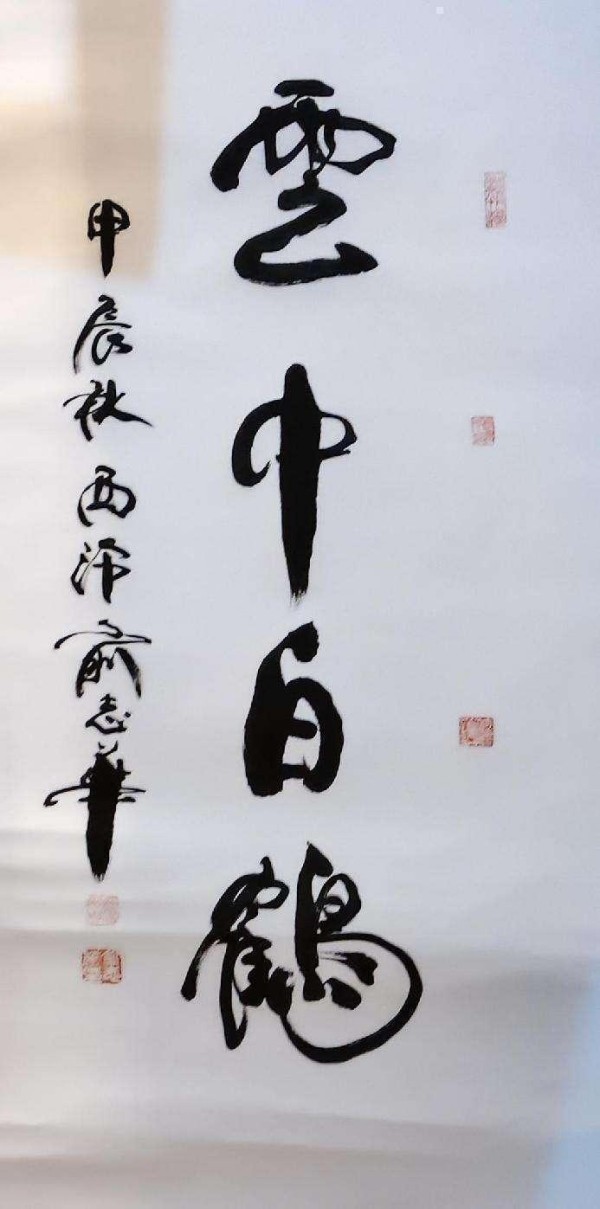 雲中白鶴
甲辰秋西泠俞志華